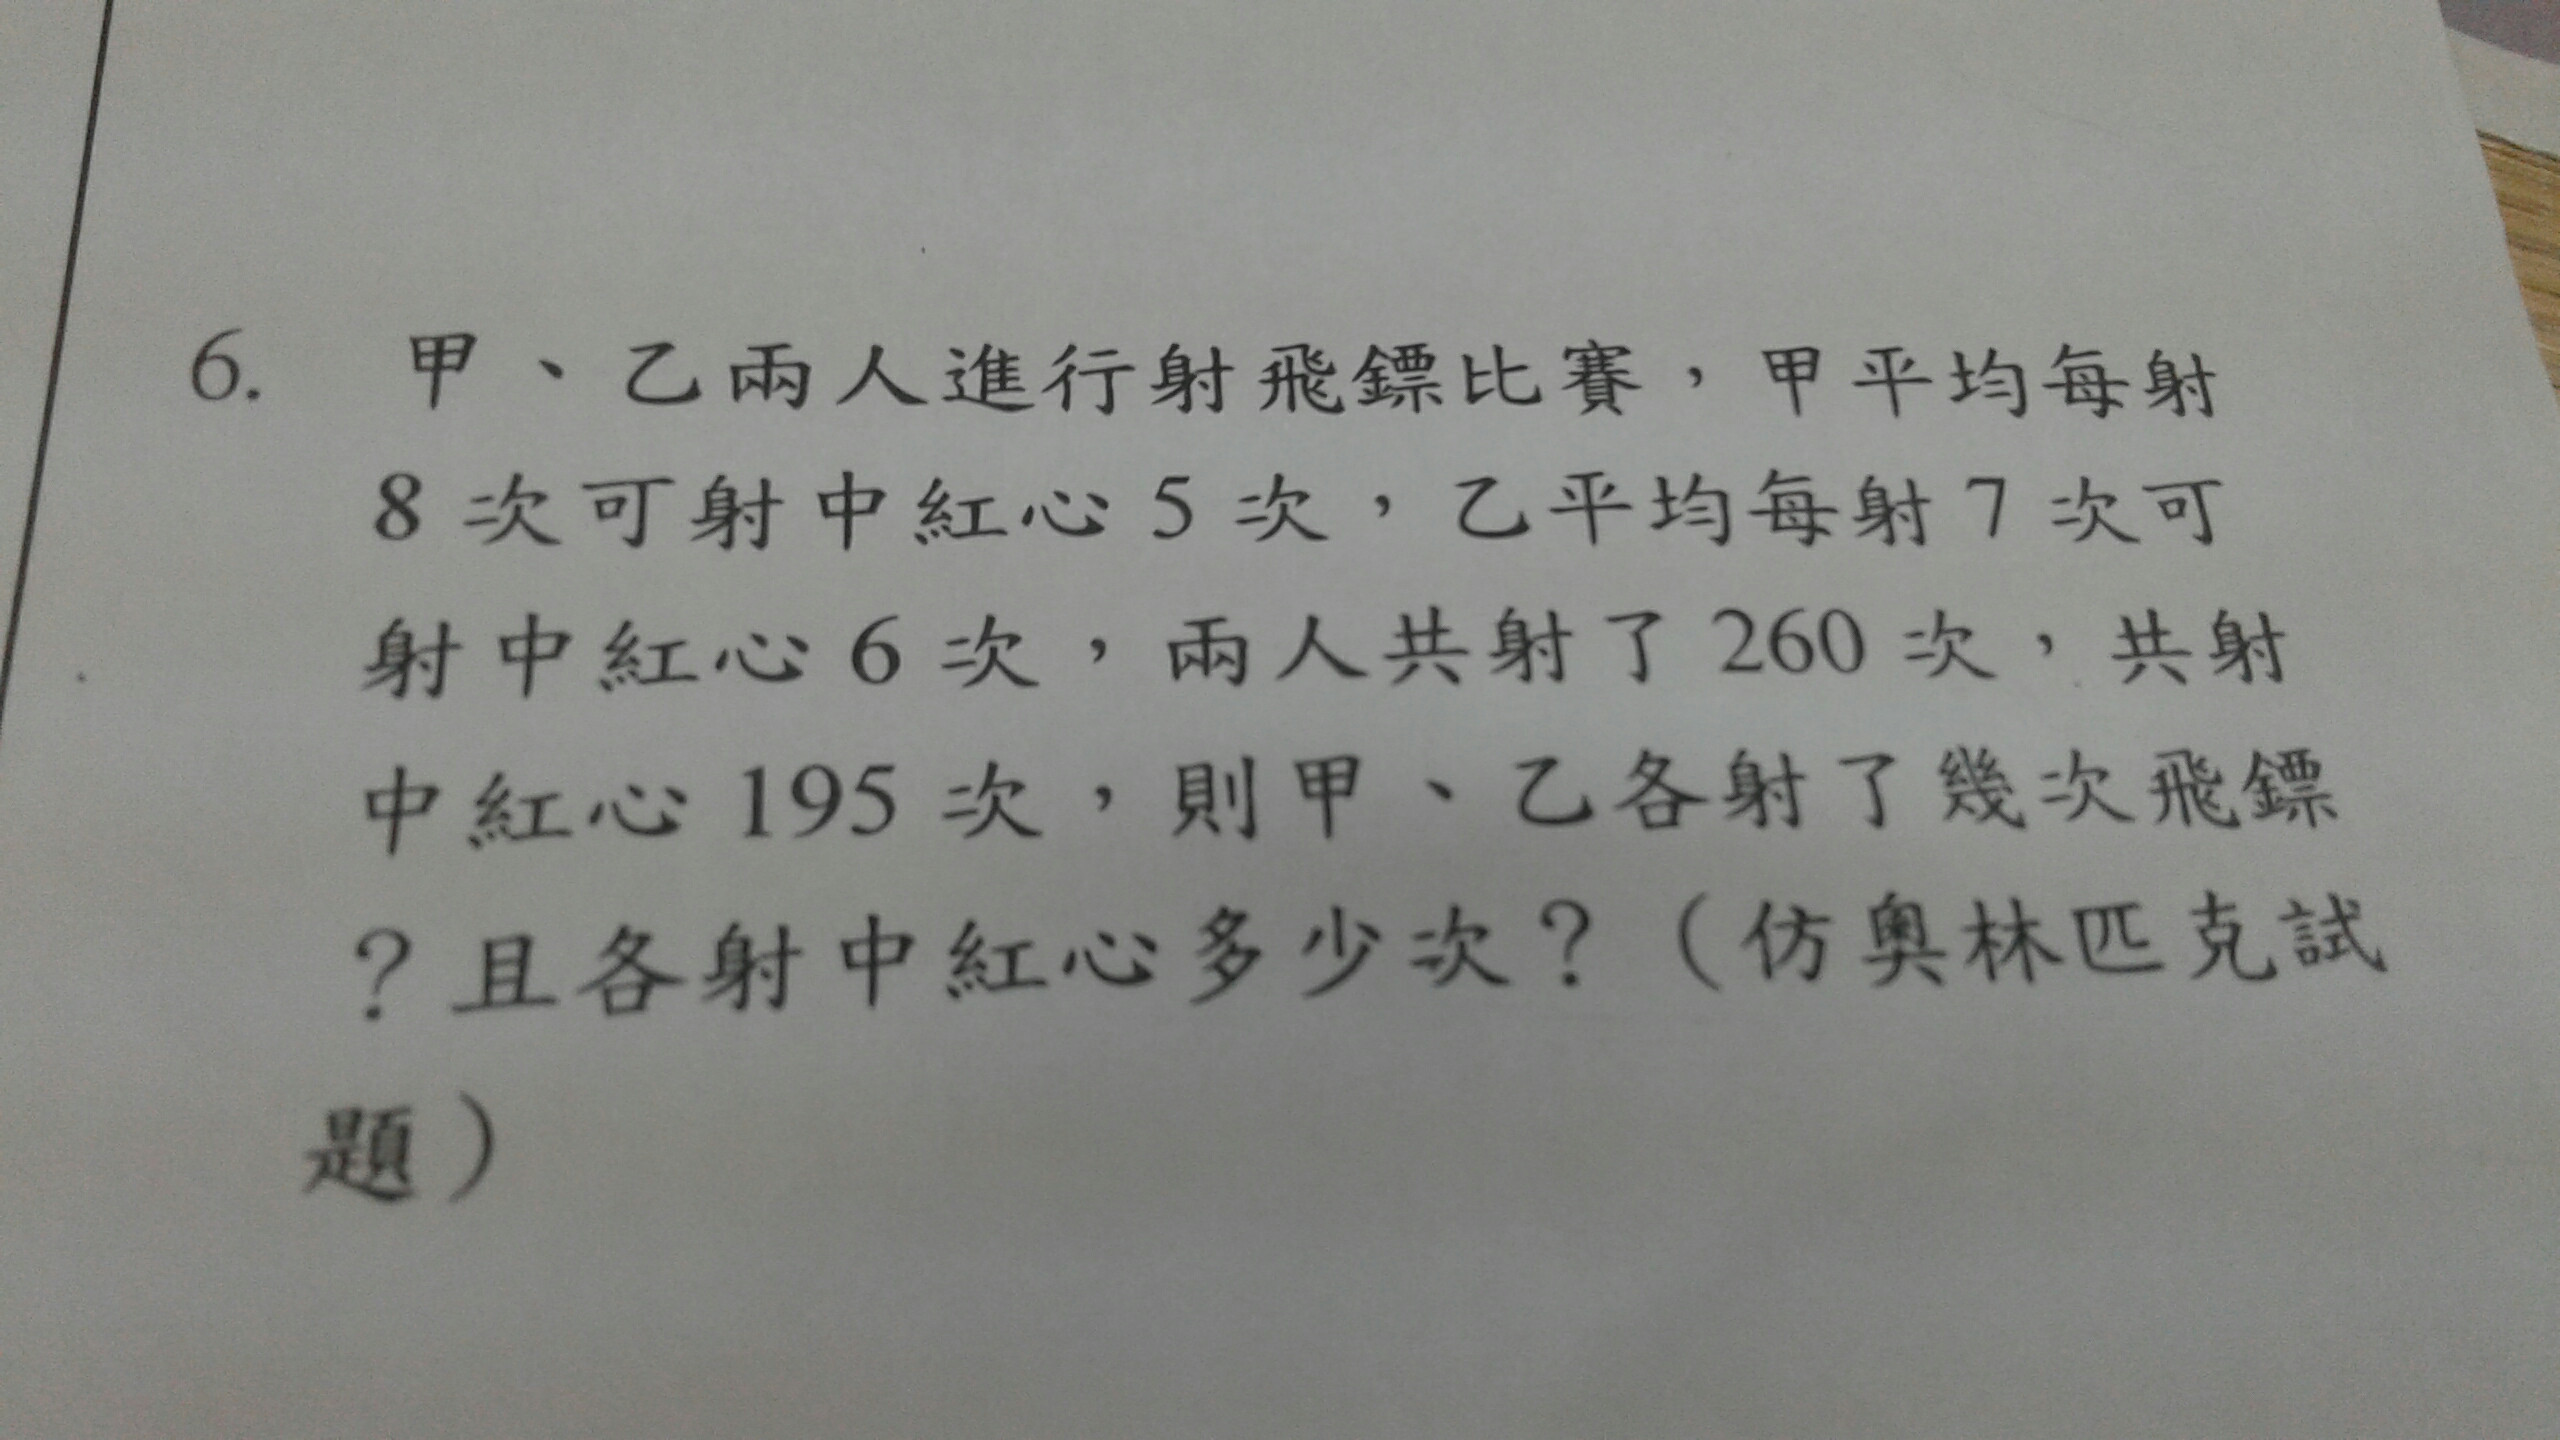 6. 甲、乙兩人進行射飛鏢比賽，甲平均每射
8 次可射中紅心 5 次，乙平均每射 7 次可
射中紅心 6 次，兩人共射了 260 次，共射
中紅心 195 次，則甲、乙各射了幾次飛鏢
？且各射中紅心多少次？（仿奧林匹克試
題）